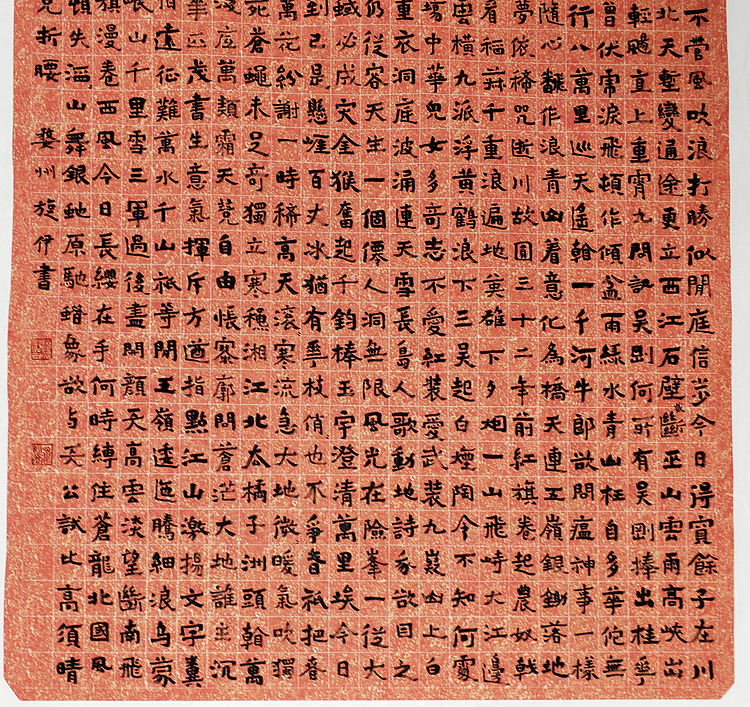 不管風吹浪打勝似閒庭信步今日得寬餘子在川
北天塹變通途更立西江石壁截斷巫山雲雨高峽出
輕颺直上重霄九問訊吳剛何所有吳剛捧出桂花
曾伏虎淚飛頓作傾盆雨綠水青山枉自多華佗無
行八萬里巡天遙看一千河牛郎欲問瘟神事一樣
隨心翻作浪青山着意化為橋天連五嶺銀鋤落地
夢依稀咒逝川故園三十二年前紅旗卷起農奴戟
看稻菽千重浪遍地英雄下夕烟一山飛峙大江邊
雲橫九派浮黃鶴浪下三吳起白煙陶令不知何處
場中華兒女多奇志不愛紅裝愛武裝九嶷山上白
重衣洞庭波涌連天雪長島人歌動地詩我欲因之
仍從容天生一個僊人洞無限風光在險峯一從大
蜮必成灾金猴奮起千鈞棒玉宇澄清萬里埃今日
到已是懸崖百丈冰猶有花枝俏也不爭春祇把春
萬花紛謝一時稀高天滾寒流急大地微暖氣吹獨
死蒼蠅未足奇獨立寒穐湘江北去橘子洲頭看萬
淺底萬類霜天競自由悵寥廓問蒼茫大地誰主沉
華正茂書生意氣揮斥方遒指點江山激揚文字糞
怕遠征難萬水千山祇等閒五嶺逶迤騰細浪烏蒙
岷山千里雪三軍過後盡開顏天高雲淡望斷南飛
旗漫卷西風今日長纓在手何時縛住蒼龍北國風
頓失滔山舞銀蛇原馳蠟象欲与天公試比高須晴
折腰 婺州旋伊書